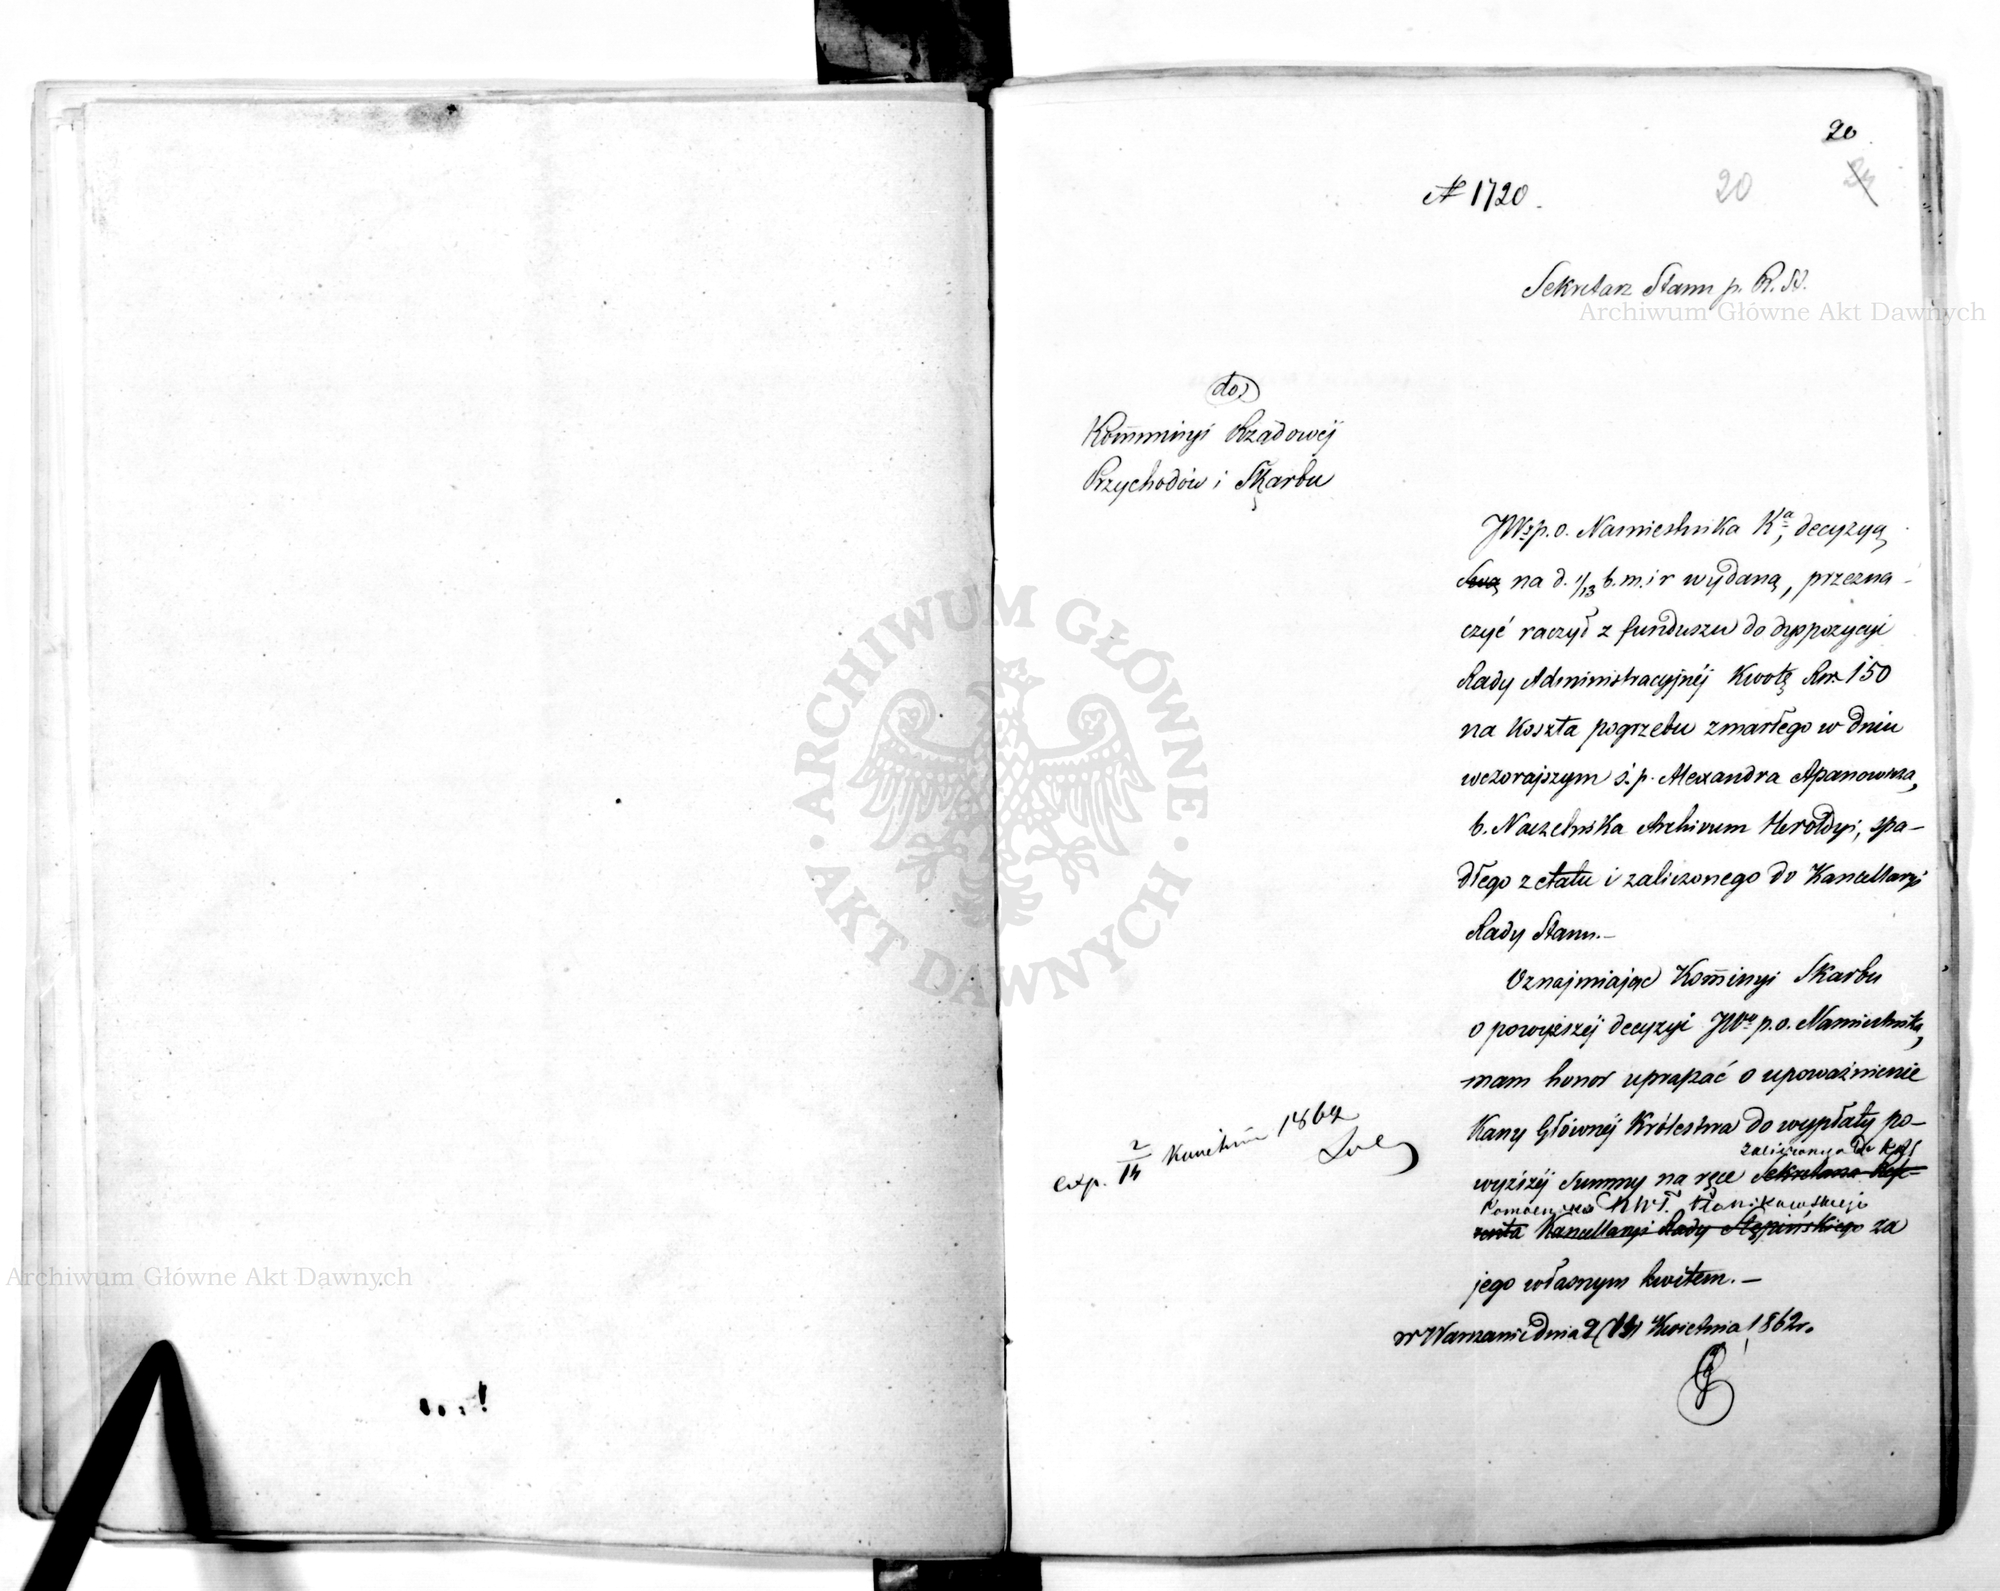 20
20
34
№ 1720.
Sekretarz Stanu p. R. S.
do
Kommissyi Rządowéj
Przychodów i Skarbu
JWy p.o. Namiestnika Ka, decyzyą
Swą na d. 1/13 b.m. i r wydaną, przezna-
czyć raczył z funduszu do dyspozycyi
Rady Administracyjnéj kwotę Rsr. 150
na koszta pogrzebu zmarłego w dniu
wczorajszym ś.p. Alexandra Apanowicza,
b. Naczelnika Archivum Heroldyi, spa-
dłego z etatu i zaliczonego do Kancellaryi
Rady Stanu.–
Uznajmiając Kommissyi Skarbu
o powyższéj decyzyi JWo p.o. Namiestnika,
mam honor upraszać o upoważnienie
Kassy Głównéj Królestwa do wypłaty po-
zaliczonego do
wyższéj Summy na ręce Sekretarza Refe-
Pomocnika
renta Kancellaryi Rady Stępińskiego za
jego własnym kwitem.–
w Warszawie dnia 2 (14) Kwietnia 1862 r.
exp. 2/14 Kwietnia 1862
Archiwum Główne Akt Dawnych
ARCHIWUM GŁÓWNE AKT DAWNYCH
Archiwum Główne Akt Dawnych